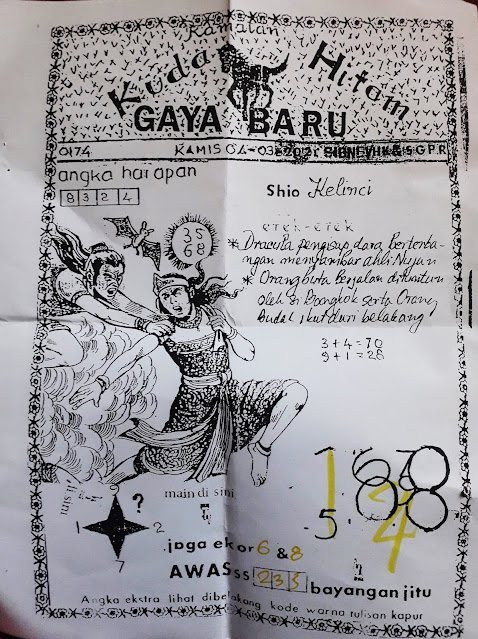 Ramalan
Kuda Hitam
GAYA BARU
0174 KAMIS 04-03-2021 SIDNEY/HK & SGPR
angka harapan
9 3 2 4
Shio Kelinci
35
68
ETEK-ETEK
* Dracula pengisap dara Bertenta-
ngan menyambar ahli Nujum
* Orang buta Berjalan dituntun
oleh si Bongkok serta Orang
Budal ikut duri belakang
3 + 4 = 70
9 + 1 = 28
1 6 8
5 4 8
di sini
main di sini
?
1 2
7
jaga ekor 6 & 8
AWASss 2 3 5 bayangan jitu
Angka ekstra lihat dibelakang kode warna tulisan kapur